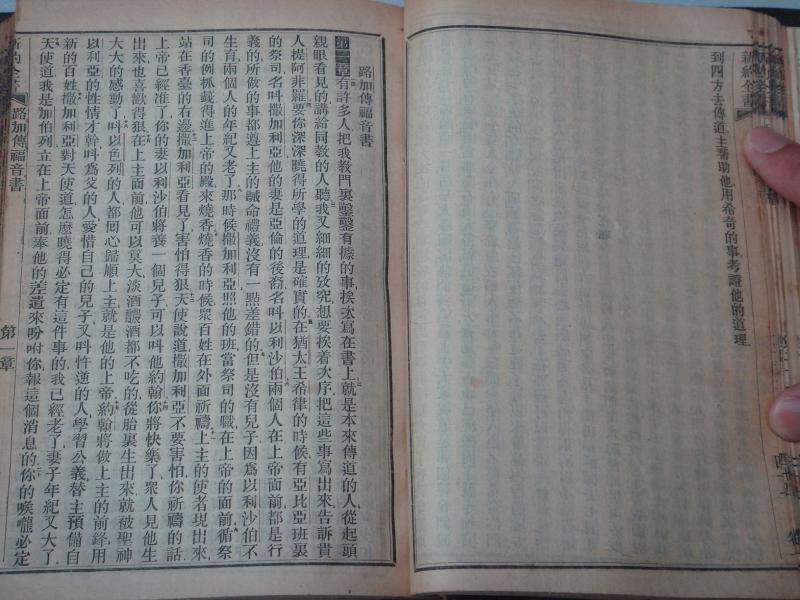 新約全書
到四方去傳道主幫助他用希奇的事考證他的道理
路加傳福音書
第一章有許多人把我教門裏鑿鑿有據的事挨次寫在書上就是本來傳道的人從起頭
親眼看見的講給同教的人聽我又細細的攷究想要挨着次序把這些事寫出來告訴貴
人提阿非羅要你深深曉得所學的道理是確實的在猶太王希律的時候有亞比亞班裏
的祭司名叫撒加利亞他的妻是亞倫的後裔名叫以利沙伯兩個人在上帝面前都是行
義的所做的事都遵上主的誡命禮義沒有一點差錯的但是沒有兒子因爲以利沙伯不
生育兩個人的年紀又老了那時候撒加利亞照他的班當祭司的職在上帝的面前循祭
司的例抓籤得進上帝的殿來燒香燒香的時候衆百姓在外面祈禱上主的使者現出來
站在香臺的右邊撒加利亞看見了害怕得狠天使說道撒加利亞不要害怕你祈禱的話
上帝已經准了你的妻以利沙伯將養一個兒子可以叫他約翰你將快樂了衆人見他生
出來也喜歡得狠在上主面前他可以莫大淡酒醲酒都不吃的從胎裏生出來就被聖神
大大的感動了叫以色列的人都囘心歸順上主就是他的上帝約翰將做上主的前鋒用
以利亞的性情才幹叫爲父的人愛惜自己的兒子又叫忤逆的人學習公義替主預備自
新的百姓撒加利亞對天使道怎麼曉得必定有這件事的我已經老了妻子年紀又大了
天使道我是加伯列立在上帝面前奉他的差遣來吩咐你報這個消息的你的喉嚨必定
新約全書
路加傳福音書
第一章